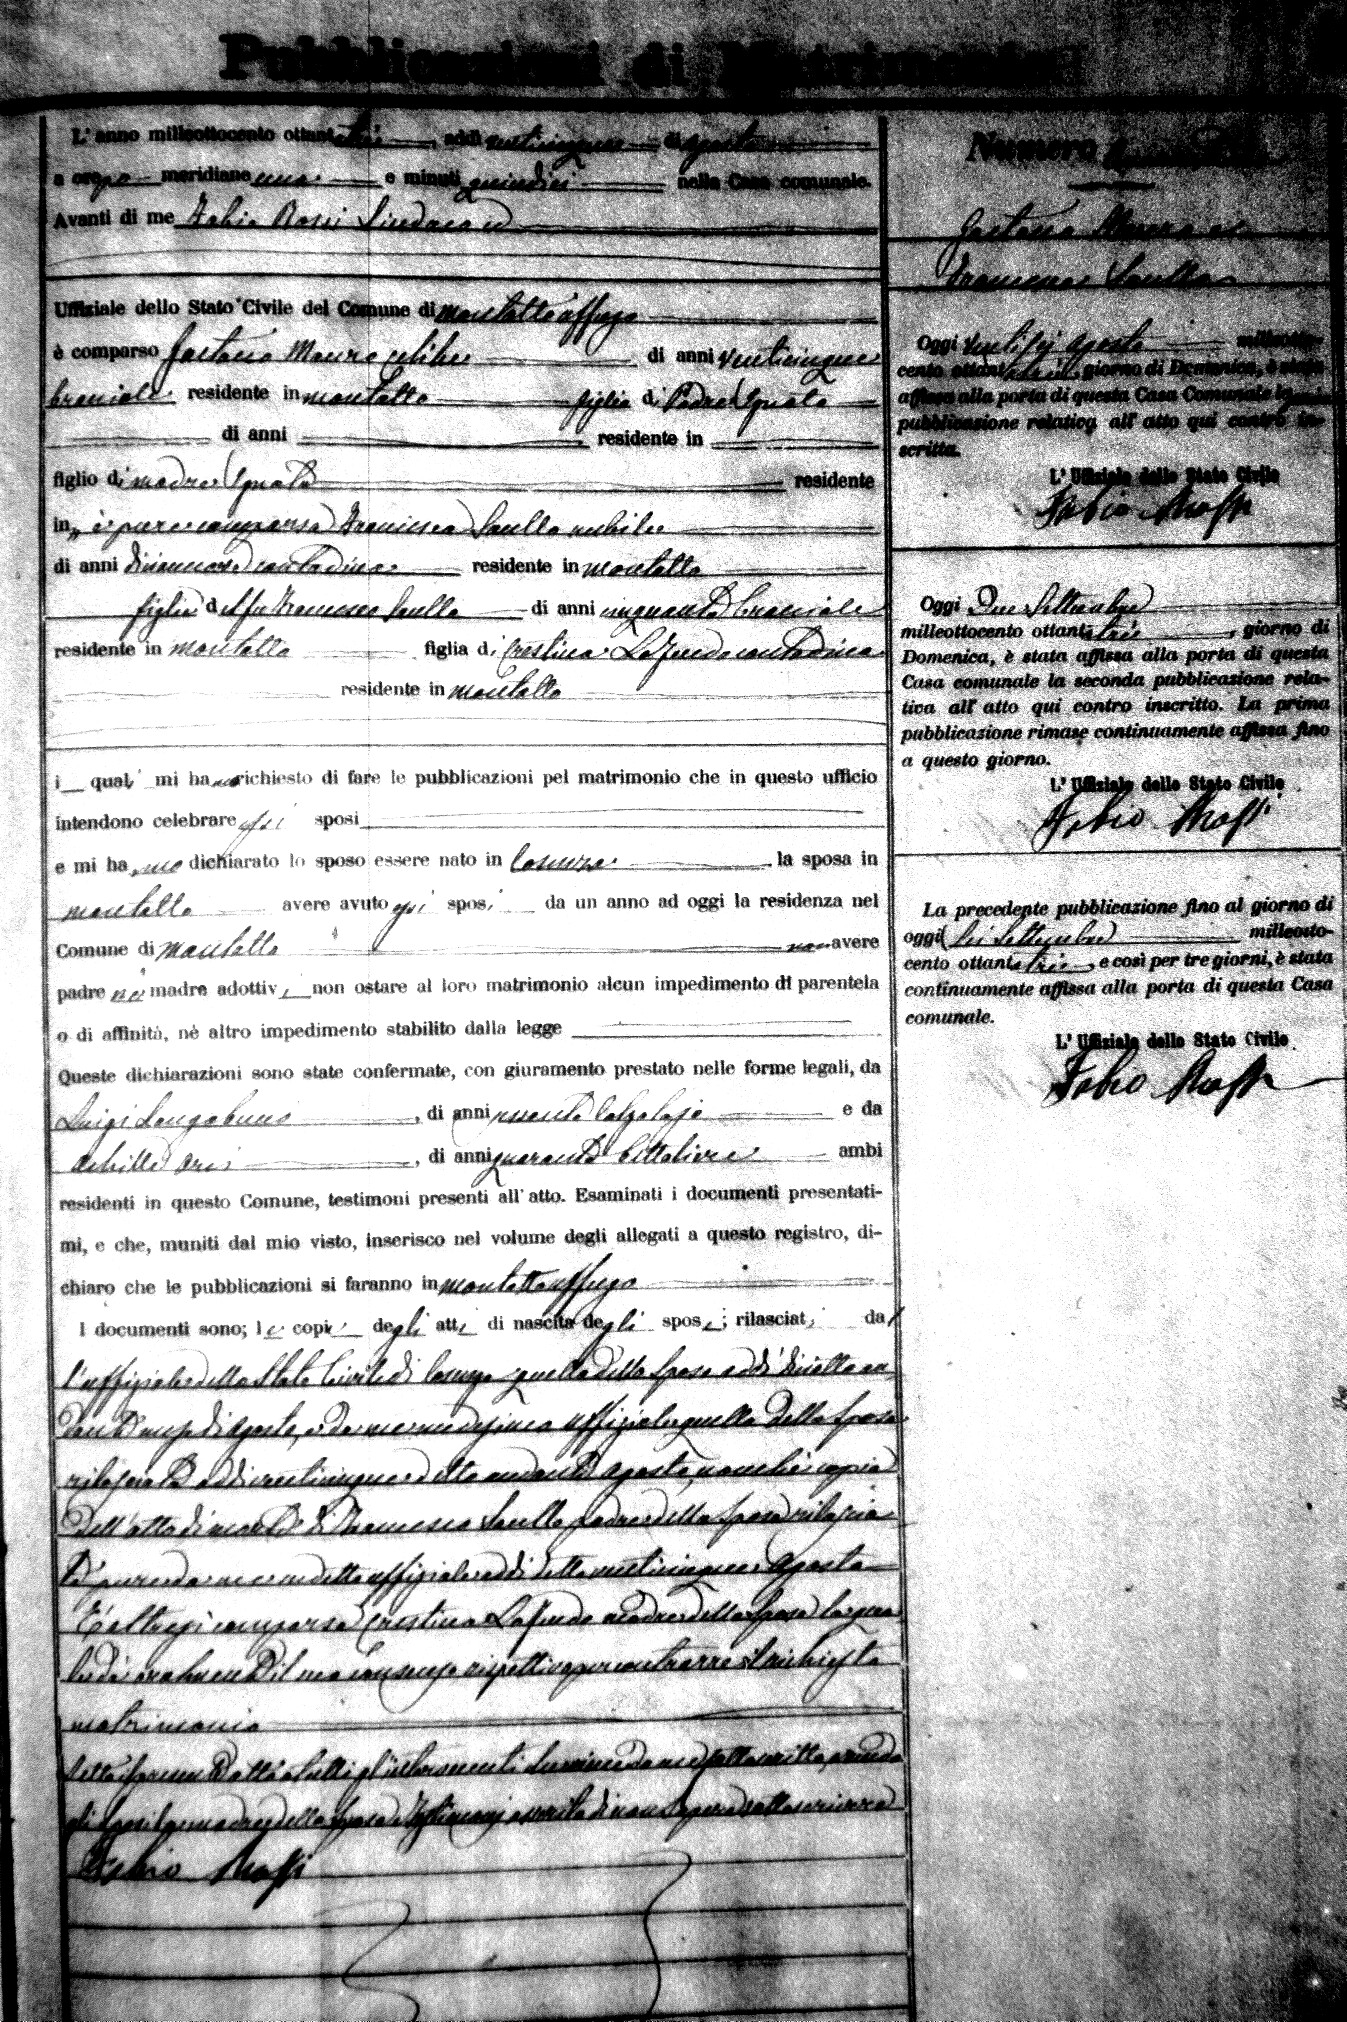 Pubblicazioni di Matrimonio
L'anno milleottocento ottantatrè, addì venticinque di Agosto
a ore po meridiane una e minuti quindici nella Casa comunale.
Avanti di me Fabio Rossi Sindaco ed
Uffiziale dello Stato Civile del Comune di Montalto Uffugo
è comparso Gaetano Mauro celibe di anni venticinque
bracciale residente in Montalto figlio di Padre Ignoto
di anni residente in
figlio di madre Ignota residente
in è pure comparsa Francesca Saullo nubile
di anni diciannove contadina residente in Montalto
figlia del fu Francesco Saullo di anni cinquanta bracciale
residente in Montalto figlia di Cristina contadina
residente in Montalto
i quali mi hanno richiesto di fare le pubblicazioni pel matrimonio che in questo ufficio
intendono celebrare essi sposi
e mi hanno dichiarato lo sposo essere nato in Cosenza la sposa in
Montalto avere avuto essi sposi da un anno ad oggi la residenza nel
Comune di Montalto non avere
padre nè madre adottivi non ostare al loro matrimonio alcun impedimento di parentela
o di affinità, nè altro impedimento stabilito dalla legge
Queste dichiarazioni sono state confermate, con giuramento prestato nelle forme legali, da
Luigi Longobucco, di anni calzolajo e da
Achille, di anni quaranta ambi
residenti in questo Comune, testimoni presenti all'atto. Esaminati i documenti presentati-
mi, e che, muniti dal mio visto, inserisco nel volume degli allegati a questo registro, di-
chiaro che le pubblicazioni si faranno in Montalto Uffugo
I documenti sono; le copie degli atti di nascita degli sposi; rilasciati dal
l'uffiziale dello Stato Civile di Cosenza quella dello sposo addì diciotto an
dante mese di Agosto, e da me medesimo uffiziale quella della sposa
rilasciata addì venticinque detto andante Agosto, nonchè copia
dell'atto di morte di Francesco Saullo padre della sposa rilascia
ta pure da me cennato uffiziale addì detto venticinque Agosto
È altresì comparsa Cristina madre della sposa la qua
le dà oralmente il suo consenso rispettivo per contrarre il richiesto
matrimonio
Letto il presente atto a tutti gl'intervenuti da me sottoscritto, avendo
gli sposi la madre della sposa e testimoni asserito di non sapere sottoscrivere
Fabio Rossi
Numero
Gaetano Mauro e
Francesca Saullo
Oggi ventisei Agosto milleotto-
cento ottantatrè giorno di Domenica, è stata
affissa alla porta di questa Casa Comunale la prima
pubblicazione relativa all'atto qui contro in-
scritto.
L'Uffiziale dello Stato Civile
Fabio Rossi
Oggi Due Settembre
milleottocento ottantatrè, giorno di
Domenica, è stata affissa alla porta di questa
Casa comunale la seconda pubblicazione rela-
tiva all'atto qui contro inscritto. La prima
pubblicazione rimase continuamente affissa fino
a questo giorno.
L'Uffiziale dello Stato Civile
Fabio Rossi
La precedente pubblicazione fino al giorno di
oggi sei Settembre milleotto-
cento ottantatrè, e così per tre giorni, è stata
continuamente affissa alla porta di questa Casa
comunale.
L'Uffiziale dello Stato Civile
Fabio Rossi